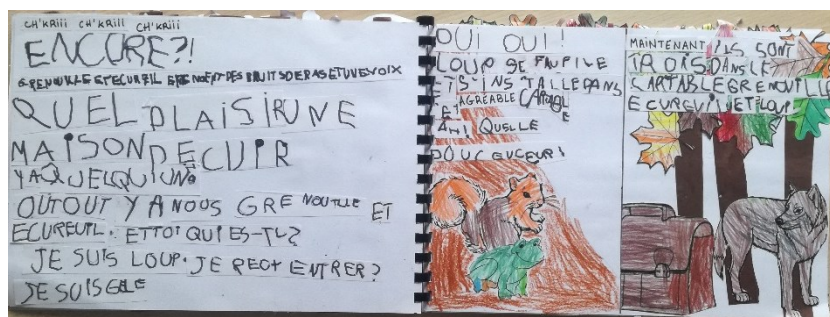 CH'KRiii CH'KRiii CH'KRiii
ENCORE?!
GRENOUILLE ET ECUREIL ENTENDENT DES BRUITS DE PAS ET UNE VOIX
QUEL PLAISIR UNE
MAISON DE CUIR
Y A QUELQU'UN?
OUTOUT Y A NOUS GRENOUILLE ET
ECUREUIL. ET TOI QUI ES-TU?
JE SUIS LOUP. JE PEUX ENTRER?
JE SUIS GELE
OUI OUI!
LOUP SE FAUFILE
ET S'INSTALLE DANS
CET AGREABLE CARTABLE
AH! QUELLE
DOUCEUR!
MAINTENANT ILS SONT
TROIS DANS LE
CARTABLE GRENOUILLE
ECUREUIL ET LOUP